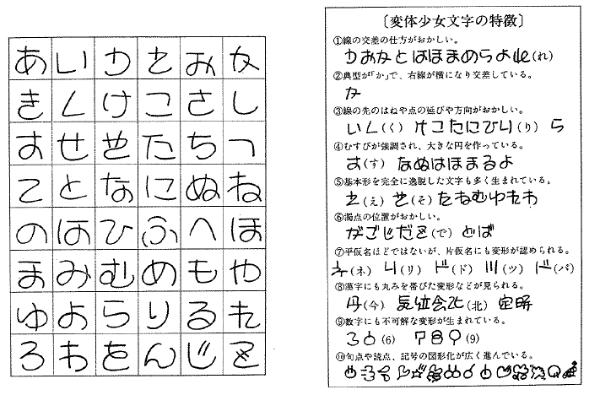 あいうえおか
きくけこさし
すせそたちつ
てとなにぬね
のはひふへほ
まみむめもや
ゆよらりるれ
ろわをんじ
〔変体少女文字の特徴〕
①線の交差の仕方がおかしい。
うおかとはほまめらよれ(れ)
②典型が「か」で、右線が横になり交差している。
か
③線の先のはねや点の延びや方向がおかしい。
いく(く) けこたにひり(り) ら
④むすびが強調され、大きな円を作っている。
す(す) なぬはほまるよ
⑤基本形を完全に逸脱した文字も多く生まれている。
え(え) そ(そ) たねむゆれわ
⑥濁点の位置がおかしい。
がごじだで(で) どば
⑦平仮名ほどではないが、片仮名にも変形が認められる。
ネ(ネ) リ(リ) ド(ド) ツ(ツ) パ(パ)
⑧漢字にも丸みを帯びた変形などが見られる。
今(今) 気位会北(北)
⑨数字にも不可解な変形が生まれている。
36(6) 789(9)
⑩句点や読点、記号の図形化が広く進んでいる。